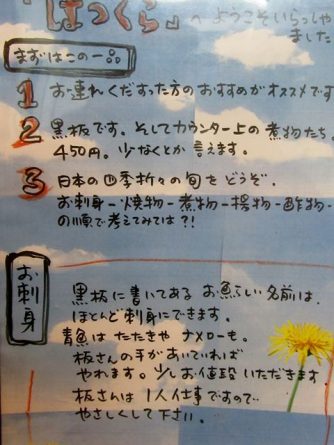 『はっくら』へ ようこそいらっしゃい
ました
まずはこの一品
1 お連れくだすった方のおすすめがオススメです
2 黒板です。そしてカウンター上の煮物たち。
450円。少なくとか言えます。
3 日本の四季折々の旬をどうぞ.
お刺身-焼物-煮物-揚物-酢物-
の順で考えてみては?!
お刺身
黒板に書いてある お魚らしい名前は、
ほとんど刺身にできます。
青魚は たたきや ナメローも。
板さんの手があいていれば
やれます。少しお値段いただきます
板さんは 1人仕事ですので…
やさしくして下さい。